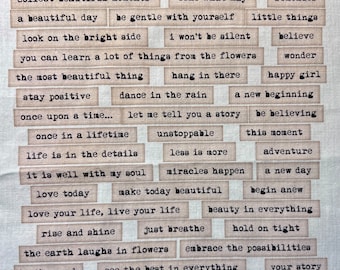 a beautiful day be gentle with yourself little things
look on the bright side i won't be silent believe
you can learn a lot of things from the flowers wonder
the most beautiful thing hang in there happy girl
stay positive dance in the rain a new beginning
once upon a time... let me tell you a story be believing
once in a lifetime unstoppable this moment
life is in the details less is more adventure
it is well with my soul miracles happen a new day
love today make today beautiful begin anew
love your life, live your life beauty in everything
rise and shine just breathe hold on tight
the earth laughs in flowers embrace the possibilities
see the best in everything your story